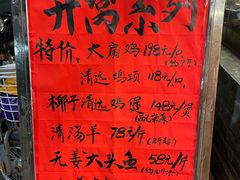 开窝系列
特价：大扇鸡198元/只
清远鸡项 118元/只
椰子清远鸡煲 148元/煲
清汤羊 78元/斤
(2斤起)
无美大头鱼 58元/斤